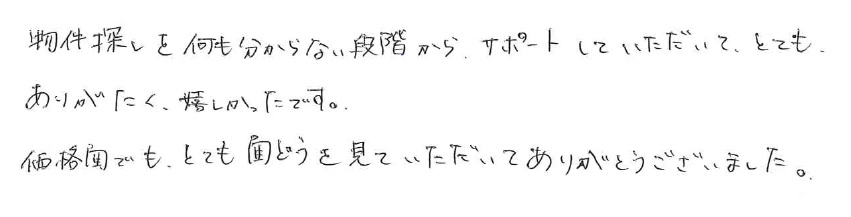 物件探しを何も分からない段階から、サポートしていただいて、とても、
ありがたく、嬉しかったです。
価格面でも、とても面どうを見ていただいてありがとうございました。